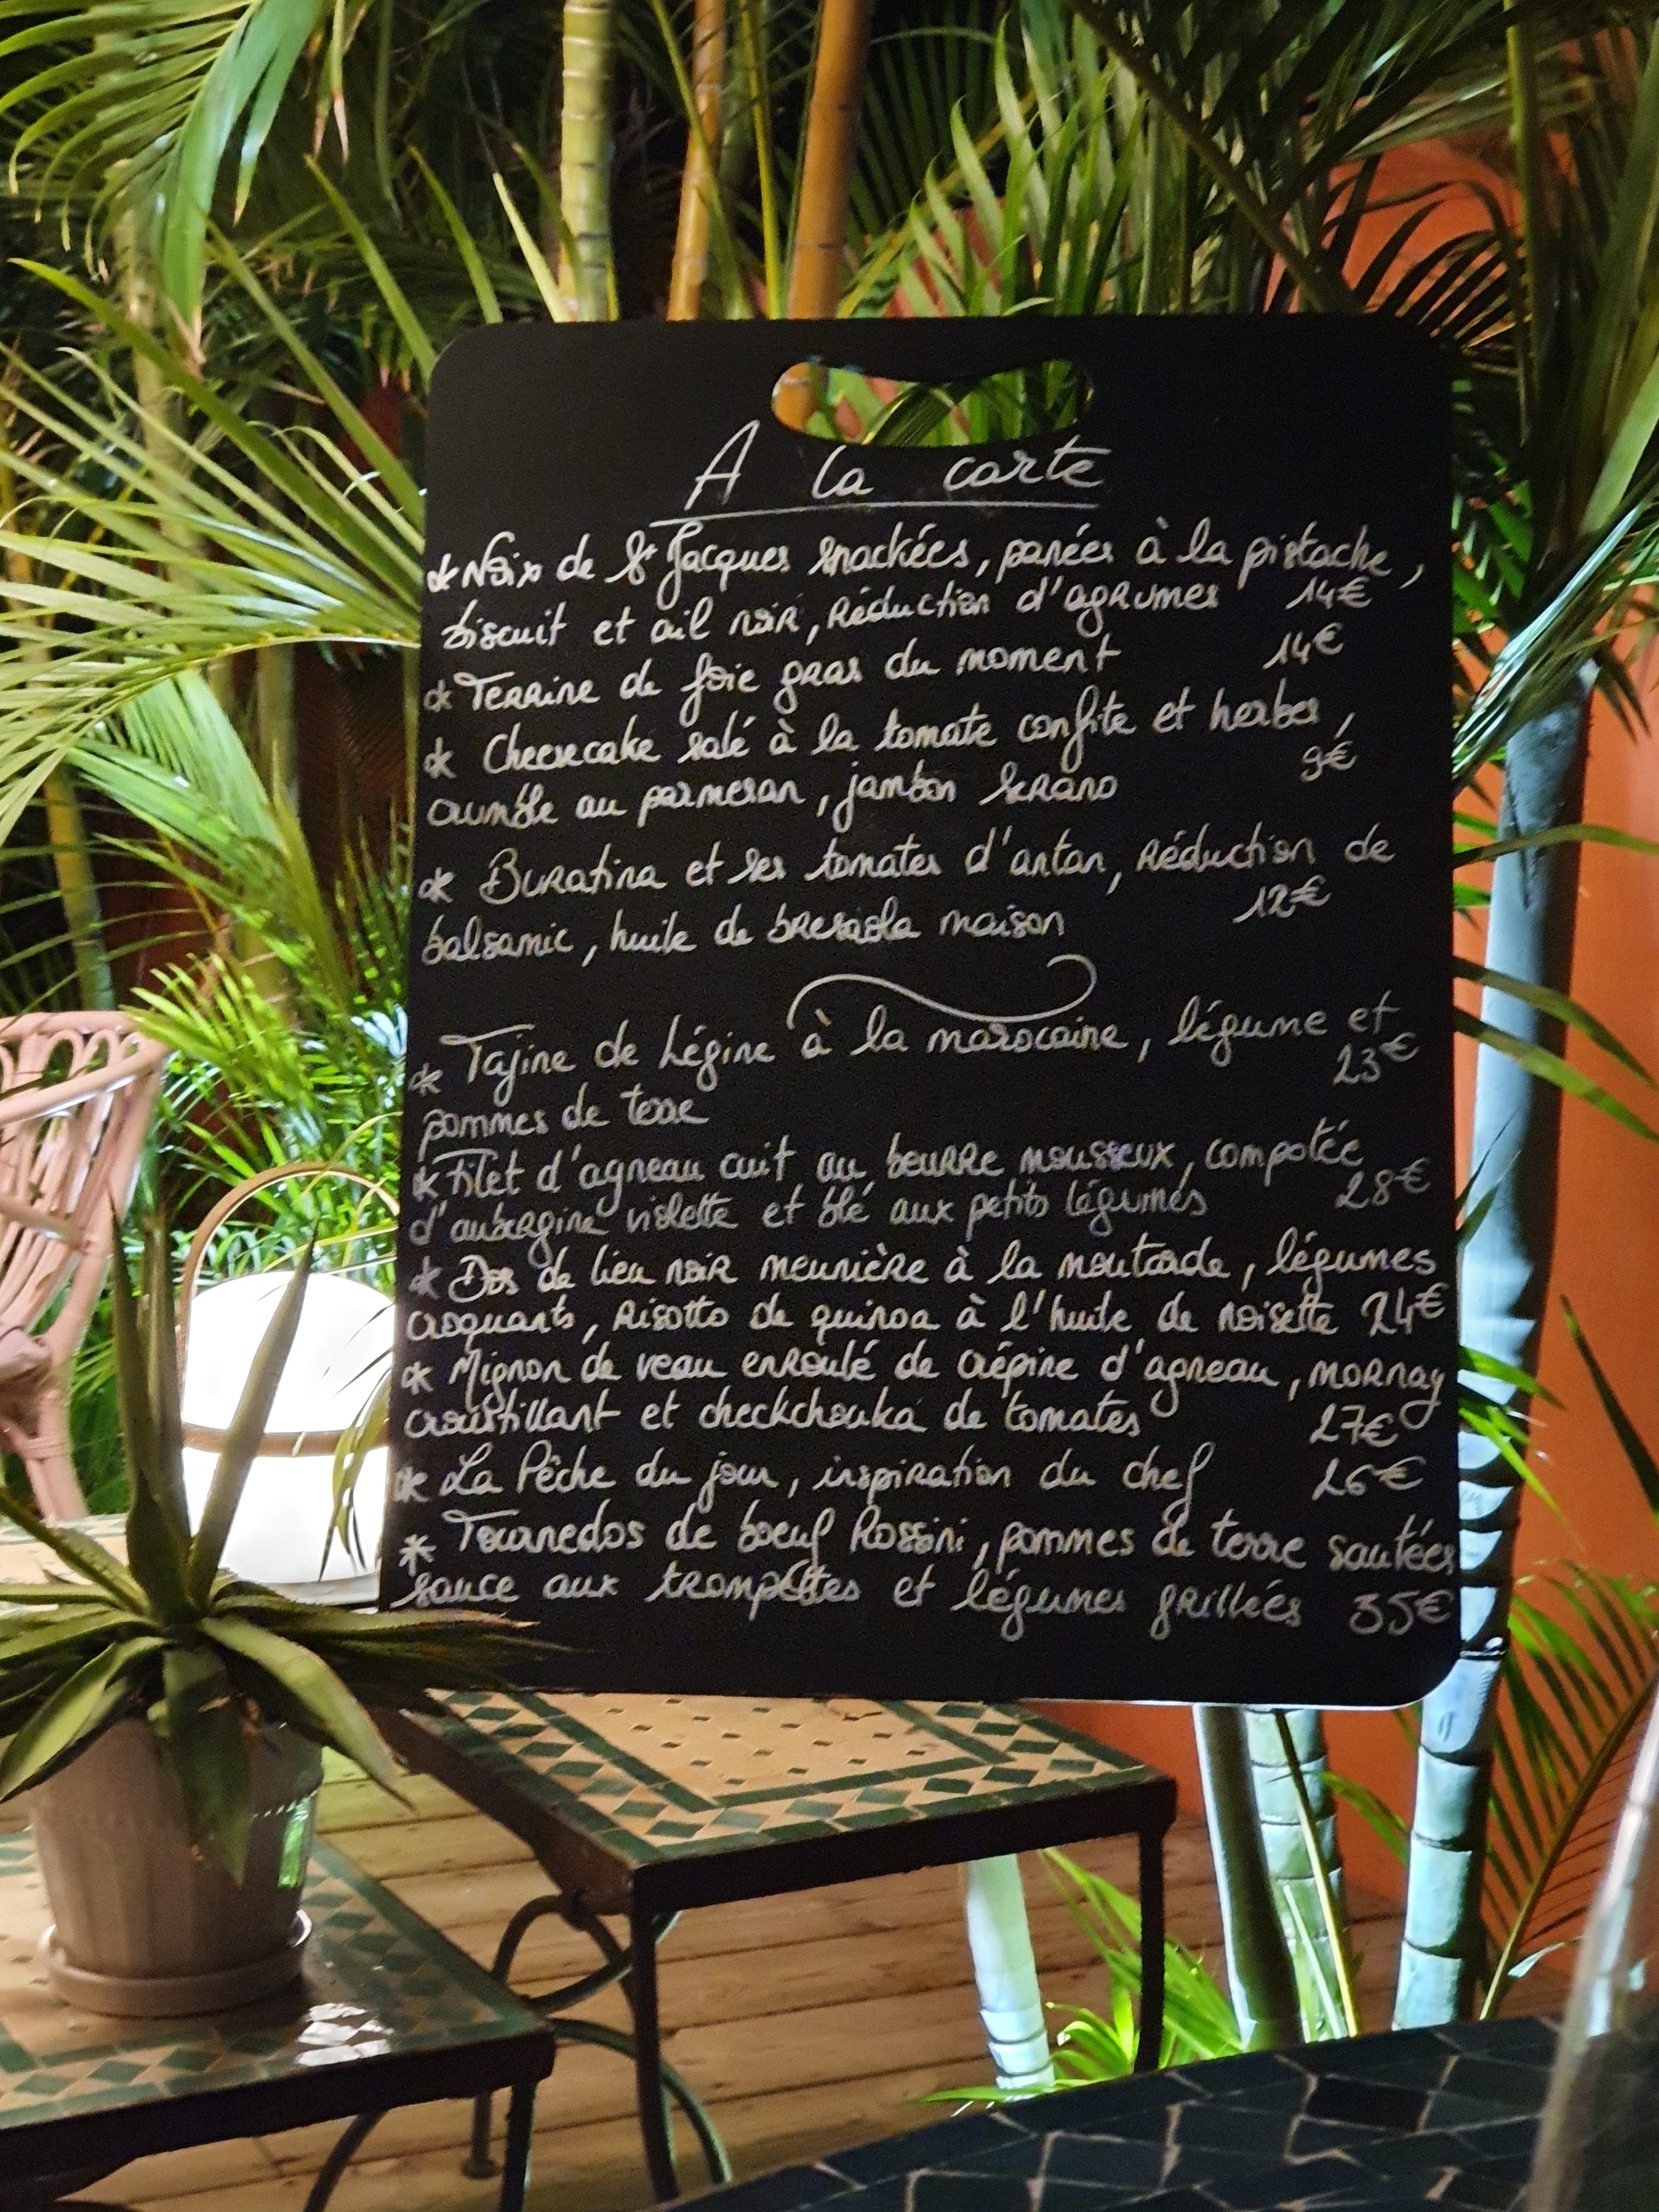 A la carte
* Noix de St Jacques snackées, panées à la pistache,
biscuit et ail noir, Réduction d'agrumes 14€
* Terrine de foie gras du moment 14€
* Cheesecake salé à la tomate confite et herbes,
crumble au parmesan, jambon serano 9€
* Buratina et ses tomates d'antan, Réduction de
balsamic, huile de bresaola maison 12€
* Tajine de Légine à la marocaine, légume et
pommes de terre 23€
* Filet d'agneau cuit au beurre mousseux, compotée
d'aubergine violette et blé aux petits légumes 28€
* Dos de lieu noir meunière à la moutarde, légumes
croquants, Risotto de quinoa à l'huile de noisette 24€
* Mignon de veau enroulé de crépine d'agneau, mornay
croustillant et checkchouka de tomates 27€
* La Pêche du jour, inspiration du chef 26€
* Tournedos de boeuf Rossini, pommes de terre sautées
sauce aux trompettes et légumes grillées 35€